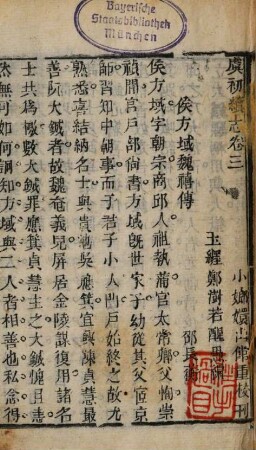 Bayerische
Staatsbibliothek
München
虞初續志卷三
小嫏嬛山館重校刊
玉經鄭澍若醒愚
侯方域魏禧傳
邵長蘅
侯方域字朝宗商邱人祖執蒲官太常卿父恂崇
禎間官戶部尚書方域旣世家子幼從其父宦京
師習知中朝事而于君子小人門戶始終之故尤
熟悉喜結納名士與貴池吳應箕宜興陳貞慧最
善阮大鋮者故魏奄義兒屏居金陵謀復用諸名
士共爲檄數大鋮罪應箕貞慧主之大鋮愧且恚
然無可如何詗知方域與二人者相善也私念得